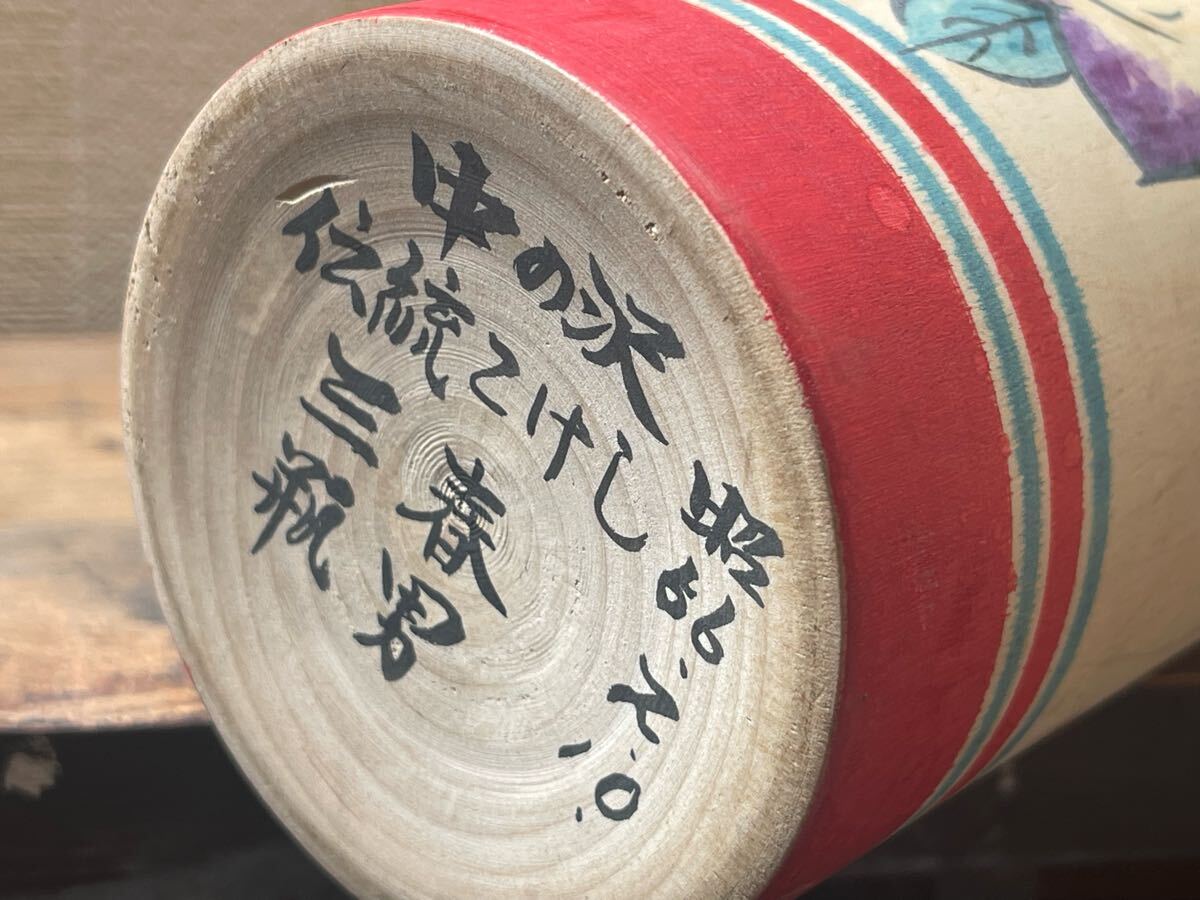 中の沢
伝統こけし
三瓶
春男
昭 2.10.